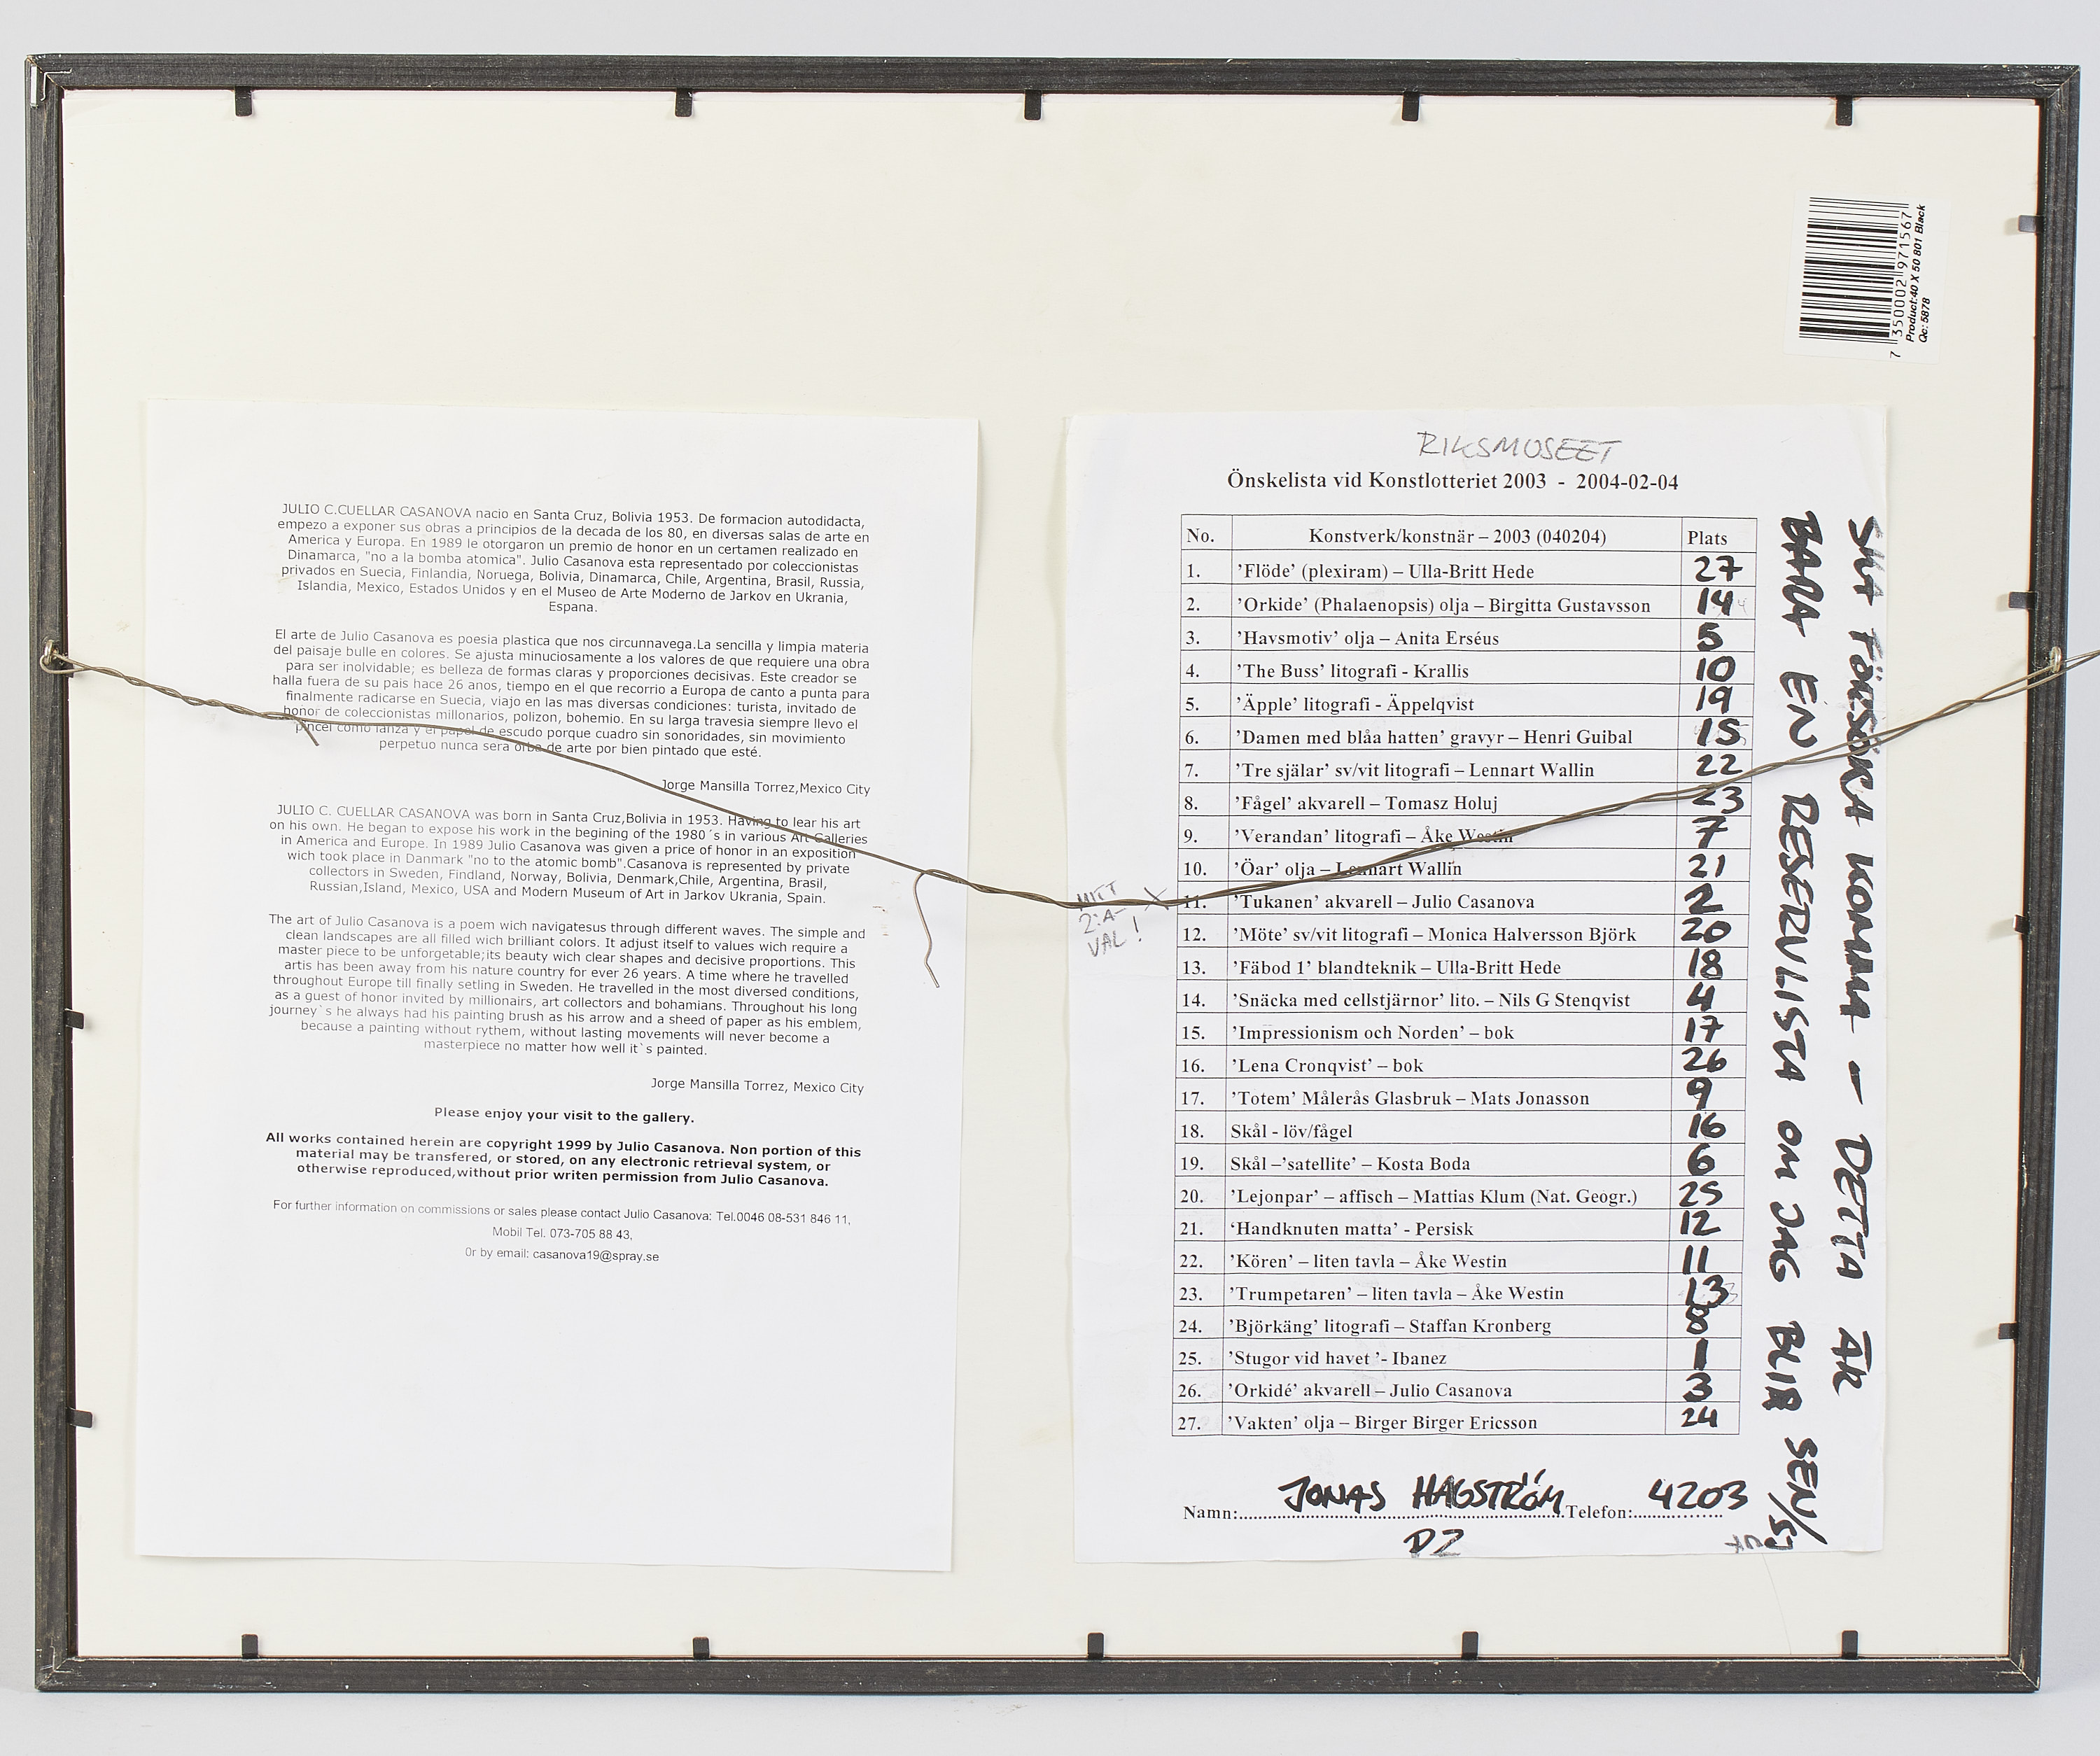 JULIO C.CUELLAR CASANOVA nacio en Santa Cruz, Bolivia 1953. De formacion autodidacta,
empezo a exponer sus obras a principios de la decada de los 80, en diversas salas de arte en
America y Europa. En 1989 le otorgaron un premio de honor en un certamen realizado en
Dinamarca, "no a la bomba atomica". Julio Casanova esta representado por coleccionistas
privados en Suecia, Finlandia, Noruega, Bolivia, Dinamarca, Chile, Argentina, Brasil, Russia,
Islandia, Mexico, Estados Unidos y en el Museo de Arte Moderno de Jarkov en Ukrania,
Espana.
El arte de Julio Casanova es poesia plastica que nos circunnavega.La sencilla y limpia materia
del paisaje bulle en colores. Se ajusta minuciosamente a los valores de que requiere una obra
para ser inolvidable; es belleza de formas claras y proporciones decisivas. Este creador se
halla fuera de su pais hace 26 anos, tiempo en el que recorrio a Europa de canto a punta para
finalmente radicarse en Suecia, viajo en las mas diversas condiciones: turista, invitado de
honor de coleccionistas millonarios, polizon, bohemio. En su larga travesia siempre llevo el
pincel como lanza y el papel de escudo porque cuadro sin sonoridades, sin movimiento
perpetuo nunca sera orba de arte por bien pintado que esté.
Jorge Mansilla Torrez,Mexico City
JULIO C. CUELLAR CASANOVA was born in Santa Cruz,Bolivia in 1953. Having to lear his art
on his own. He began to expose his work in the begining of the 1980´s in various Art Galleries
in America and Europe. In 1989 Julio Casanova was given a price of honor in an exposition
wich took place in Danmark "no to the atomic bomb".Casanova is represented by private
collectors in Sweden, Findland, Norway, Bolivia, Denmark,Chile, Argentina, Brasil,
Russian,Island, Mexico, USA and Modern Museum of Art in Jarkov Ukrania, Spain.
The art of Julio Casanova is a poem wich navigatesus through different waves. The simple and
clean landscapes are all filled wich brilliant colors. It adjust itself to values wich require a
master piece to be unforgetable;its beauty wich clear shapes and decisive proportions. This
artis has been away from his nature country for ever 26 years. A time where he travelled
throughout Europe till finally setling in Sweden. He travelled in the most diversed conditions,
as a guest of honor invited by millionairs, art collectors and bohamians. Throughout his long
journey`s he always had his painting brush as his arrow and a sheed of paper as his emblem,
because a painting without rythem, without lasting movements will never become a
masterpiece no matter how well it`s painted.
Jorge Mansilla Torrez, Mexico City
Please enjoy your visit to the gallery.
All works contained herein are copyright 1999 by Julio Casanova. Non portion of this
material may be transfered, or stored, on any electronic retrieval system, or
otherwise reproduced,without prior writen permission from Julio Casanova.
For further information on commissions or sales please contact Julio Casanova: Tel.0046 08-531 846 11,
Mobil Tel. 073-705 88 43,
0r by email: casanova19@spray.se
7 350002 971567
Product:40 X 50 801 Black
Qc: 5878
RIKSMUSEET
Önskelista vid Konstlotteriet 2003 - 2004-02-04
No. Konstverk/konstnär – 2003 (040204) Plats
1. 'Flöde' (plexiram) – Ulla-Britt Hede 27
2. 'Orkide' (Phalaenopsis) olja – Birgitta Gustavsson 14
3. 'Havsmotiv' olja – Anita Erséus 5
4. 'The Buss' litografi - Krallis 10
5. 'Äpple' litografi - Äppelqvist 19
6. 'Damen med blåa hatten' gravyr – Henri Guibal 15
7. 'Tre själar' sv/vit litografi – Lennart Wallin 22
8. 'Fågel' akvarell – Tomasz Holuj 23
9. 'Verandan' litografi – Åke Westin 7
10. 'Öar' olja – Lennart Wallin 21
MITT
2:A
VAL! X
11. 'Tukanen' akvarell – Julio Casanova 2
12. 'Möte' sv/vit litografi – Monica Halversson Björk 20
13. 'Fäbod 1' blandteknik – Ulla-Britt Hede 18
14. 'Snäcka med cellstjärnor' lito. – Nils G Stenqvist 4
15. 'Impressionism och Norden' – bok 17
16. 'Lena Cronqvist' – bok 26
17. 'Totem' Målerås Glasbruk – Mats Jonasson 9
18. Skål - löv/fågel 16
19. Skål –'satellite' – Kosta Boda 6
20. 'Lejonpar' – affisch – Mattias Klum (Nat. Geogr.) 25
21. 'Handknuten matta' - Persisk 12
22. 'Kören' – liten tavla – Åke Westin 11
23. 'Trumpetaren' – liten tavla – Åke Westin 13
24. 'Björkäng' litografi – Staffan Kronberg 8
25. 'Stugor vid havet '- Ibanez 1
26. 'Orkidé' akvarell – Julio Casanova 3
27. 'Vakten' olja – Birger Birger Ericsson 24
Namn: JONAS HAGSTRÖM Telefon: 4203
SKA FÖRSÖKA KOMMA – DETTA ÄR
BARA EN RESERVLISTA OM JAG BLIR SEN/